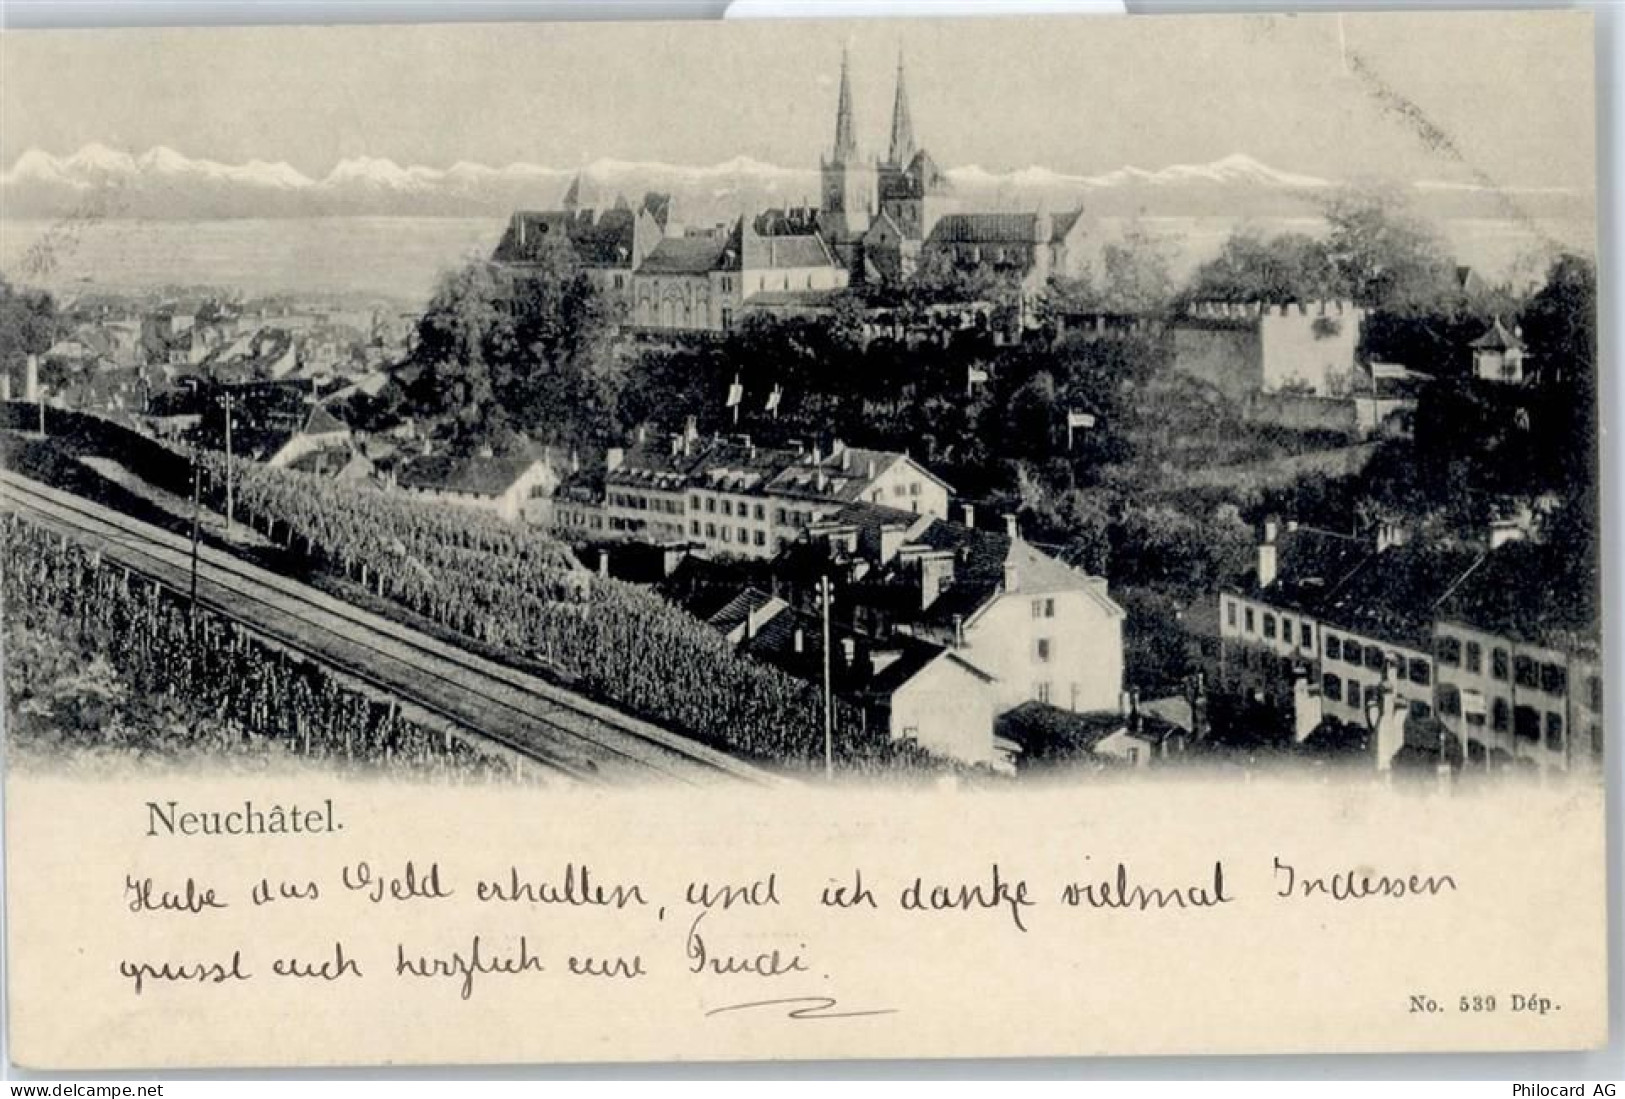 Neuchâtel.
Habe das Geld erhalten, und ich danke vielmal Indessen
grusst euch herzlich eure Trudi.
No. 539 Dép.
www.delcampe.net
Philocard AG